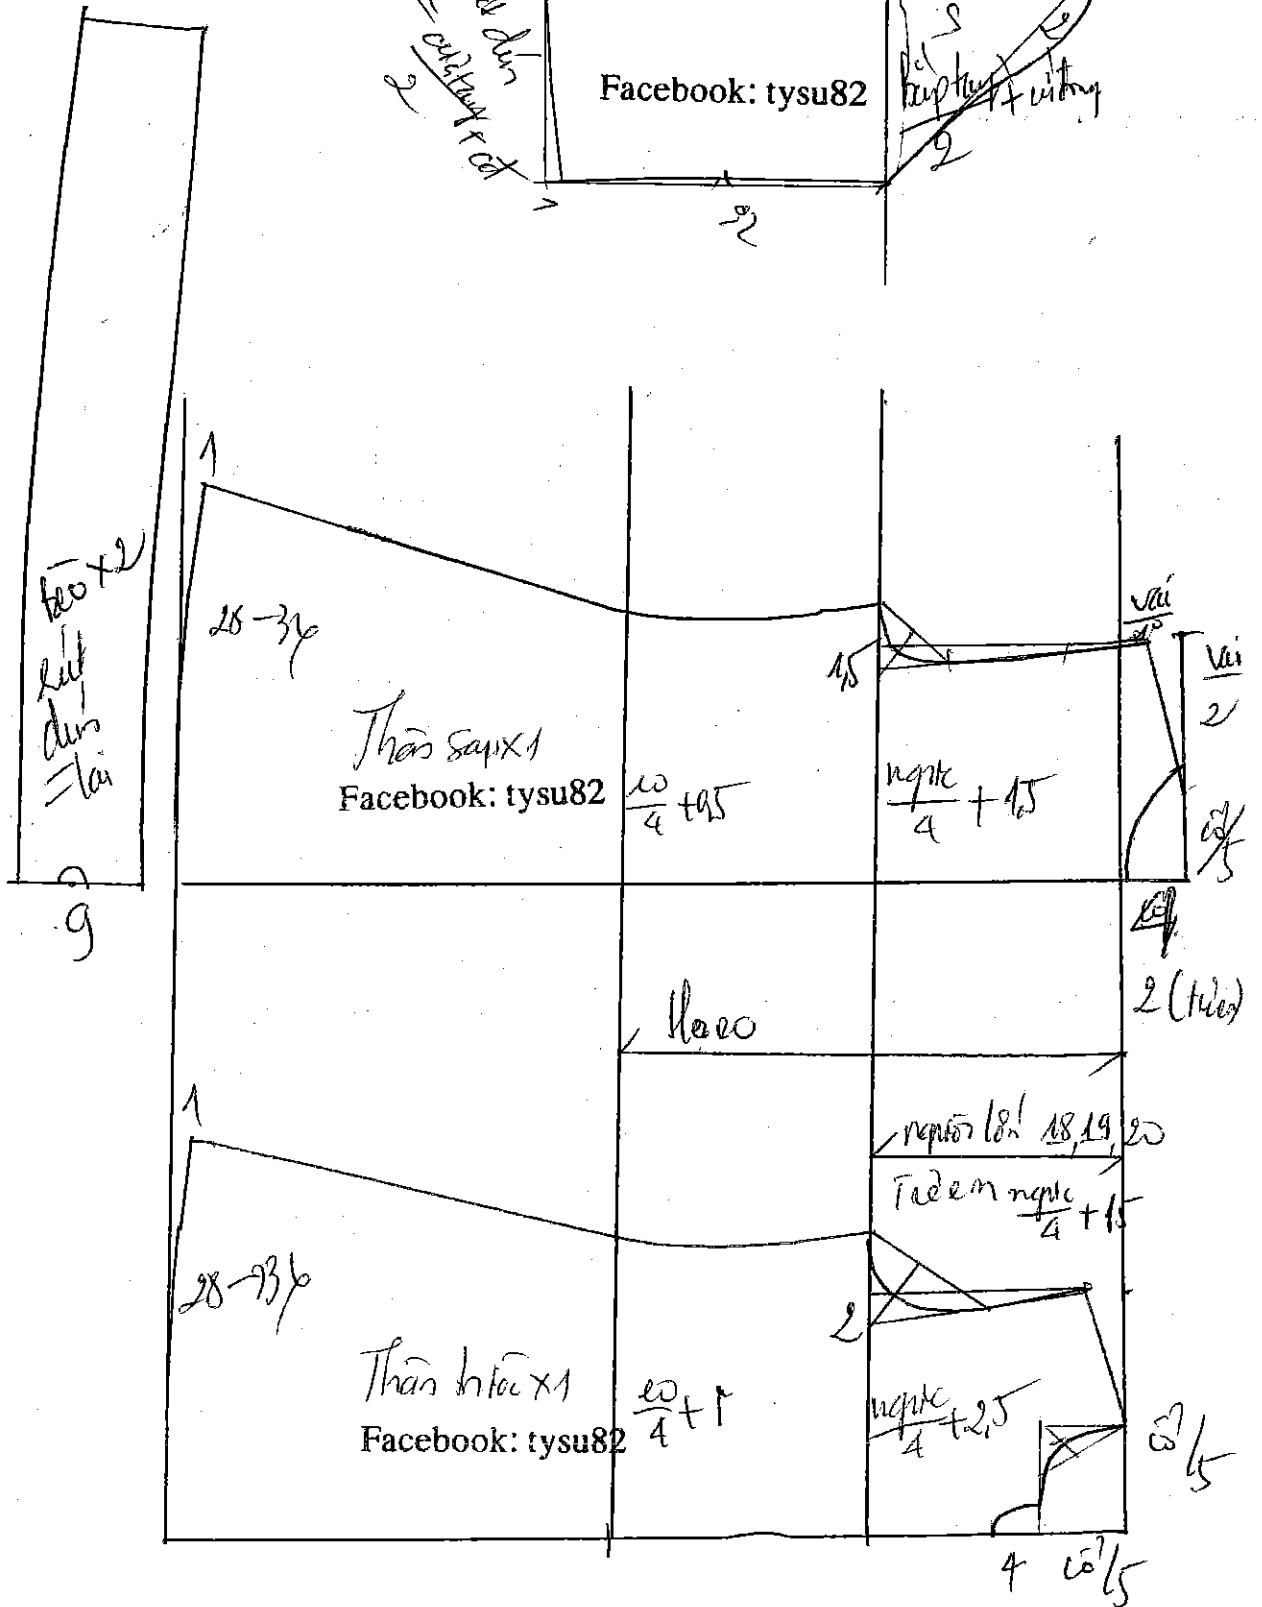 dún
= cửa tay + cất
2
Facebook: tysu82
3
2
bắp tay + cử động
2
1
2
bèo x2
rút
dún
= lai
9
1
28-34
Thân sau x1
Facebook: tysu82
eo/4 + 0,5
1,5
ngực/4 + 1,5
vai/10
vai/2
cổ/5
2 (trên)
Hạ eo
người lớn 18, 19, 20
Trẻ em ngực/4 + 1,5
1
28-34
Thân trước x1
Facebook: tysu82
eo/4 + 1
2
ngực/4 + 2,5
cổ/5
4 cổ/5